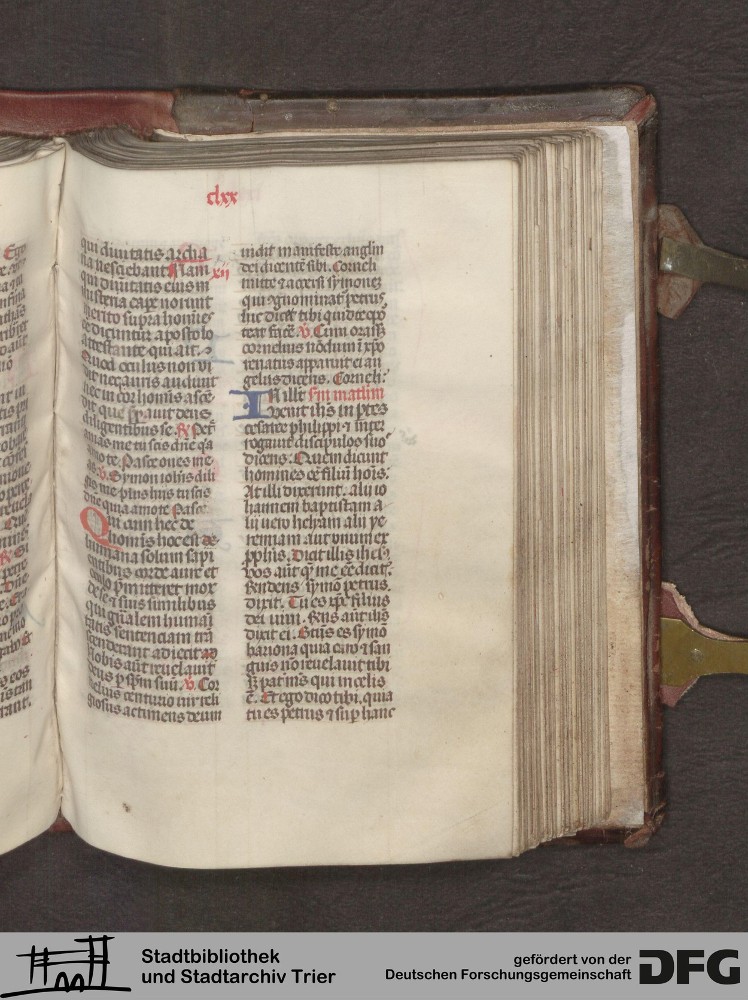 clxx
qui diuitatis archa
na nesciebant Nam xii
qui diuitatis eius m
isteria cape norunt
merito supra homies
te dicuntur apostolo
attestante qui ait.
Quod oculus non vi
dit nec auris audiuit
nec in cor hominis asce
dit que pparauit deus
diligentibus se. R. Petr
amas me tu scis dne qa
amo te. Pasce oues me
as. V. Symon iohis dili
gis me plus hiis tu scis
dne quia amo te Pasce
Qui cum hec de
homis hoc est de
humana solum sapi
entibus corde aure et
oculo pmitteret mox
de se et suis similibus
qui gnalem humai
tatis sentenciam tra
scenderant adiecit ad
Nobis aut reuelauit
deus p spm suu. V. Cor
nelius centurio uir reli
giosus ac timens deum
uidit manifeste anglm
dei dicente sibi. Corneli
mitte et accersi symonez
qui cgnominat petrus
hic dicet tibi quid te opo
teat facere. V. Cum orasset
cornelius nodum i xpo
renatus apparuit ei an
gelus dicens. Corneli:
In illo Sm matheum
Venit ihs in ptes
cesaree philippi et inter
rogauit discipulos suos
dicens. Quem dicunt
homines ee filiu hois.
At illi dixerunt. alii io
hannem baptistam a
lii uero helyam alii ye
remiam aut vnum ex
pphis. Dicit illis ihs
vos aut que me ee dicit
Rndens symo petrus
dixit. Tu es xpc filius
dei uiui. Rns aut ihs
dixit ei. Btus es symo
bariona quia caro et san
guis no reuelauit tibi
sz pat ms qui in celis
e. Et ego dico tibi. quia
tu es petrus et sup hanc
Stadtbibliothek
und Stadtarchiv Trier
gefördert von der
Deutschen Forschungsgemeinschaft
DFG